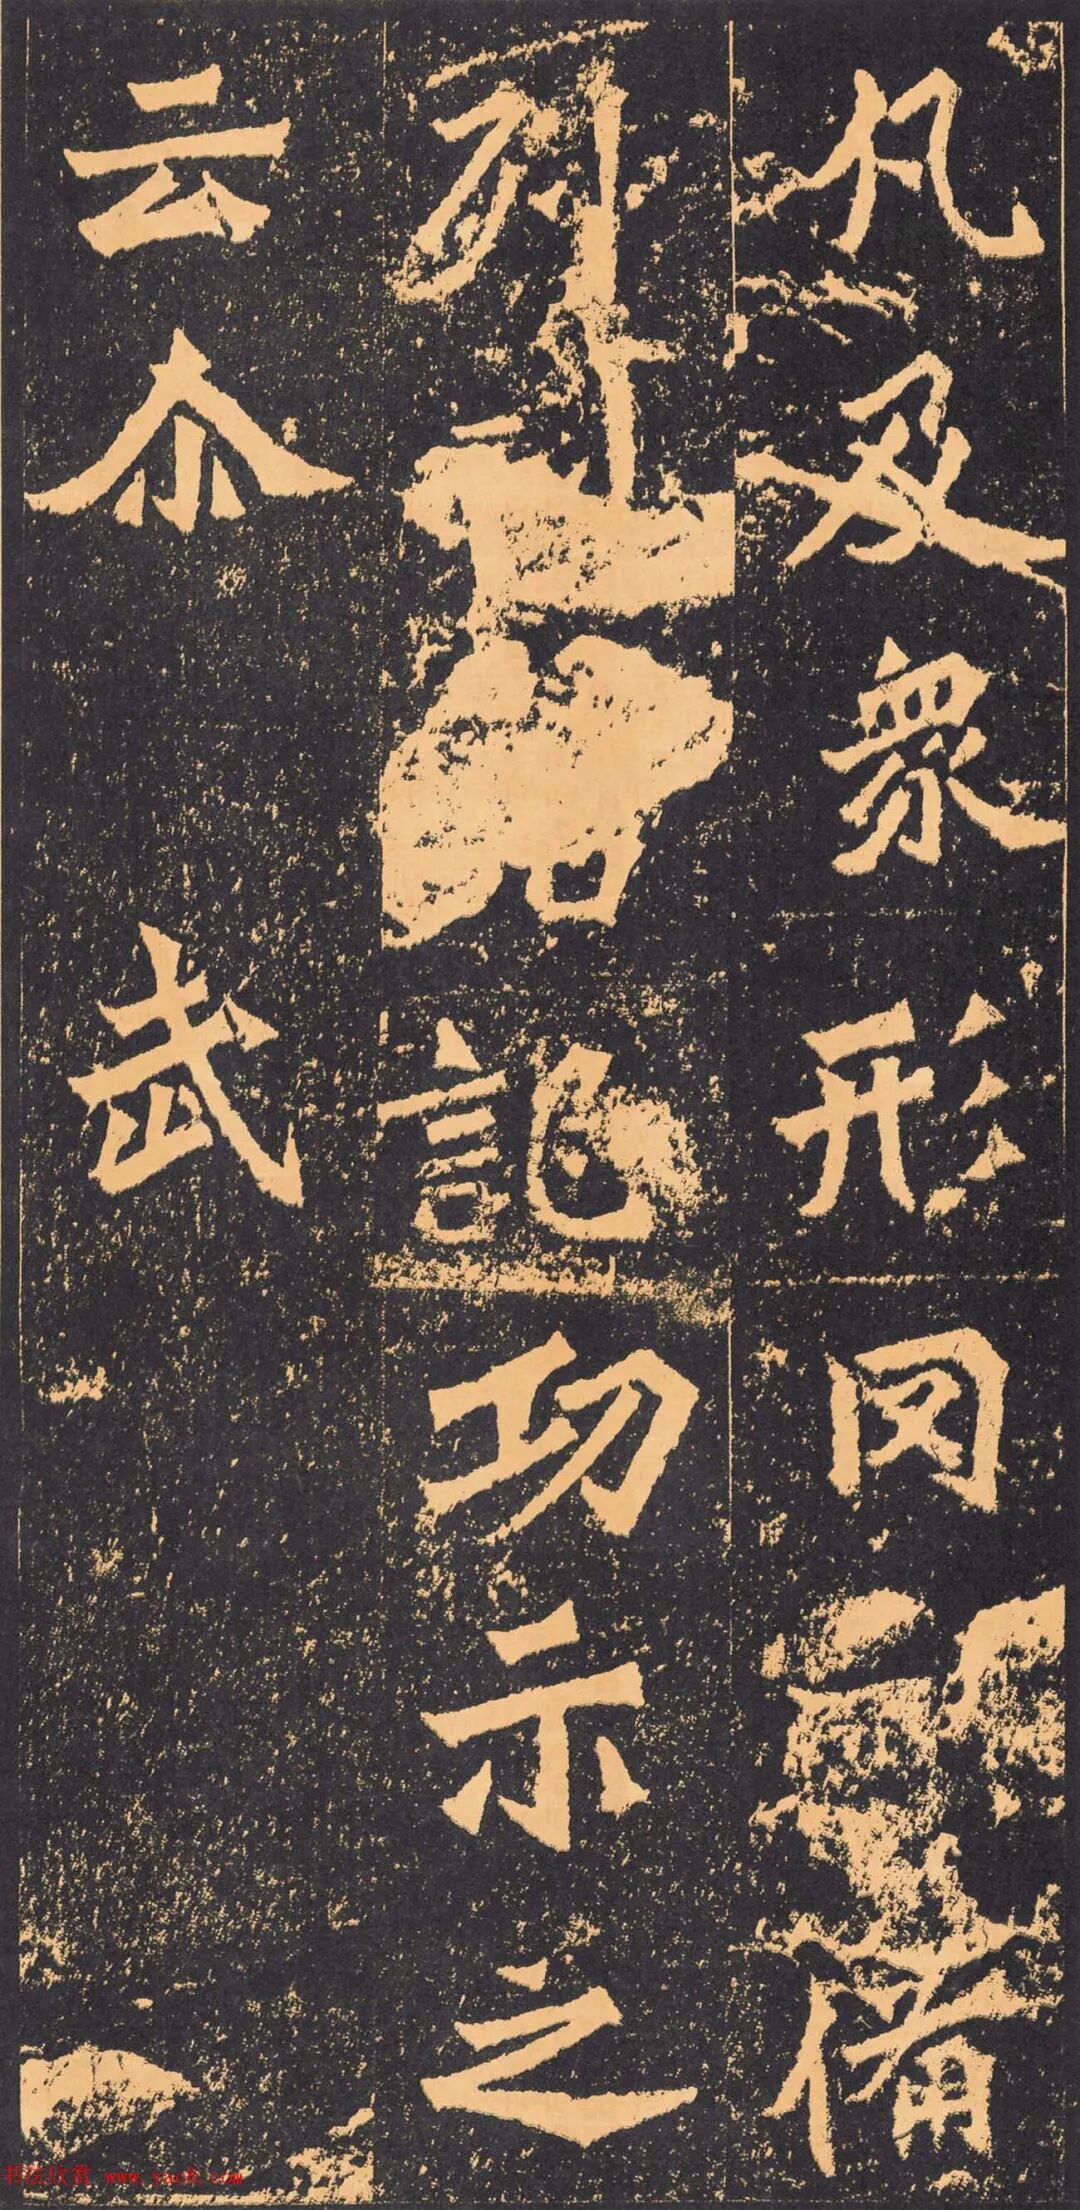 凡及衆形罔備
列刊記功示之
云尒武
书法欣赏 www.yac8.com